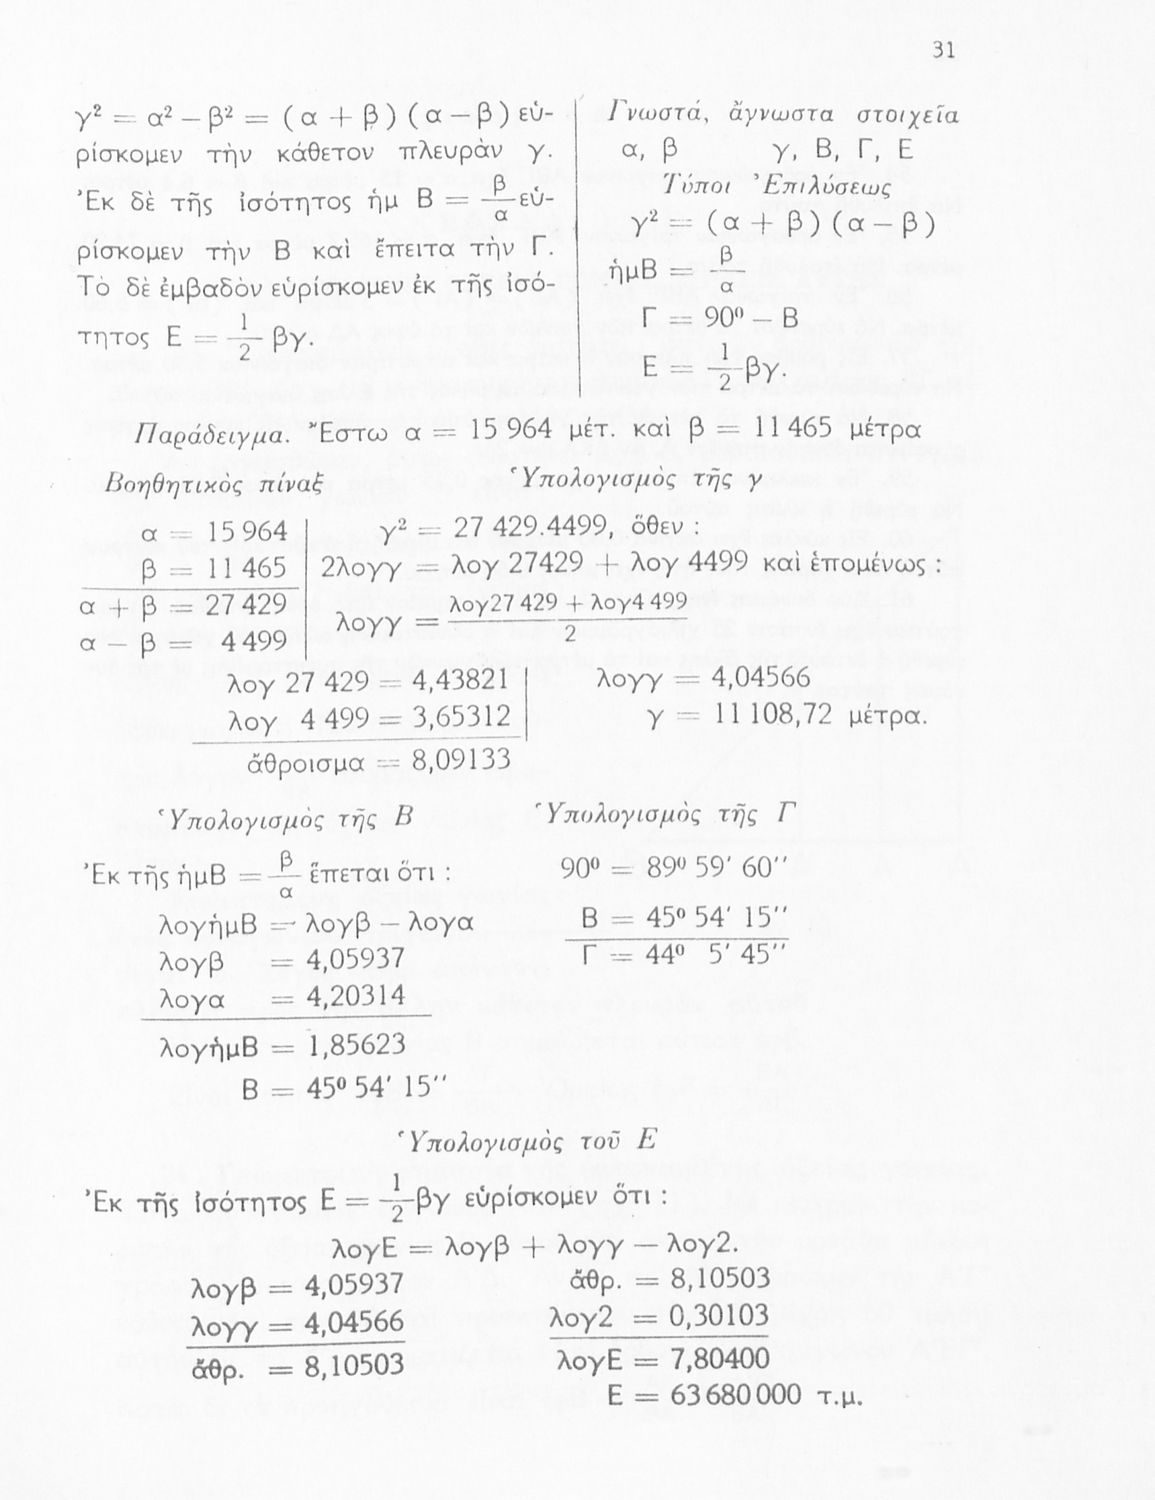 31
γ² = α² — β² = (α + β) (α — β) εὑ-
ρίσκομεν τὴν κάθετον πλευρὰν γ.
Ἐκ δὲ τῆς ἰσότητος ἡμ Β = β/α εὑ-
ρίσκομεν τὴν Β καὶ ἔπειτα τὴν Γ.
Τὸ δὲ ἐμβαδὸν εὑρίσκομεν ἐκ τῆς ἰσό-
τητος Ε = 1/2 βγ.
Γνωστά, ἄγνωστα στοιχεῖα
α, β γ, Β, Γ, Ε
Τύποι Ἐπιλύσεως
γ² = (α + β) (α — β)
ἡμΒ = β/α
Γ = 90⁰ — Β
Ε = 1/2 βγ.
Παράδειγμα. Ἔστω α = 15 964 μέτ. καὶ β = 11 465 μέτρα
Βοηθητικὸς πίναξ
α = 15 964
β = 11 465
α + β = 27 429
α — β = 4499
Ὑπολογισμὸς τῆς γ
γ² = 27 429.4499, ὅθεν :
2λογγ = λογ 27429 + λογ 4499 καὶ ἑπομένως :
λογγ = λογ27 429 + λογ4 499/2
λογ 27 429 = 4,43821
λογ 4 499 = 3,65312
ἄθροισμα = 8,09133
λογγ = 4,04566
γ = 11 108,72 μέτρα.
Ὑπολογισμὸς τῆς Β
Ἐκ τῆς ἡμΒ = β/α ἕπεται ὅτι :
λογἡμΒ = λογβ — λογα
λογβ = 4,05937
λογα = 4,20314
λογἡμΒ = 1̄,85623
Β = 45⁰ 54′ 15″
Ὑπολογισμὸς τῆς Γ
90⁰ = 89⁰ 59′ 60″
Β = 45⁰ 54′ 15″
Γ = 44⁰ 5′ 45″
Ὑπολογισμὸς τοῦ Ε
Ἐκ τῆς ἰσότητος Ε = 1/2 βγ εὑρίσκομεν ὅτι :
λογΕ = λογβ + λογγ — λογ2.
λογβ = 4,05937
λογγ = 4,04566
ἄθρ. = 8,10503
ἄθρ. = 8,10503
λογ2 = 0,30103
λογΕ = 7,80400
Ε = 63 680 000 τ.μ.